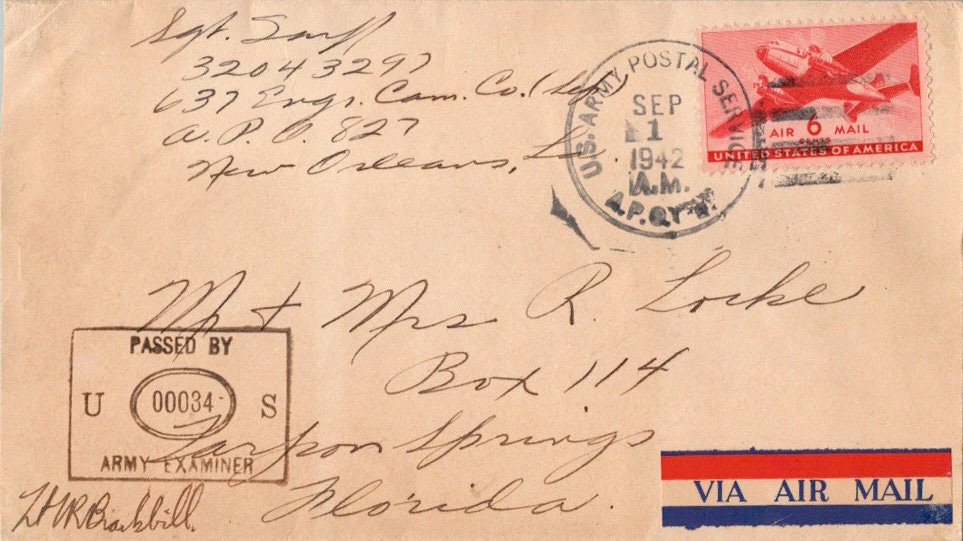 Sgt. Sauff
32043297
637 Engr. Cam. Co. (Sep)
A.P.O. 827
New Orleans, La.
U.S. ARMY POSTAL SERVICE
SEP
1
1942
A.M.
A.P.O.
AIR 6 MAIL
CENTS
UNITED STATES OF AMERICA
Mr + Mrs R. Locke
Box 114
Tarpon Springs
Florida.
PASSED BY
U 00034 S
ARMY EXAMINER
VIA AIR MAIL